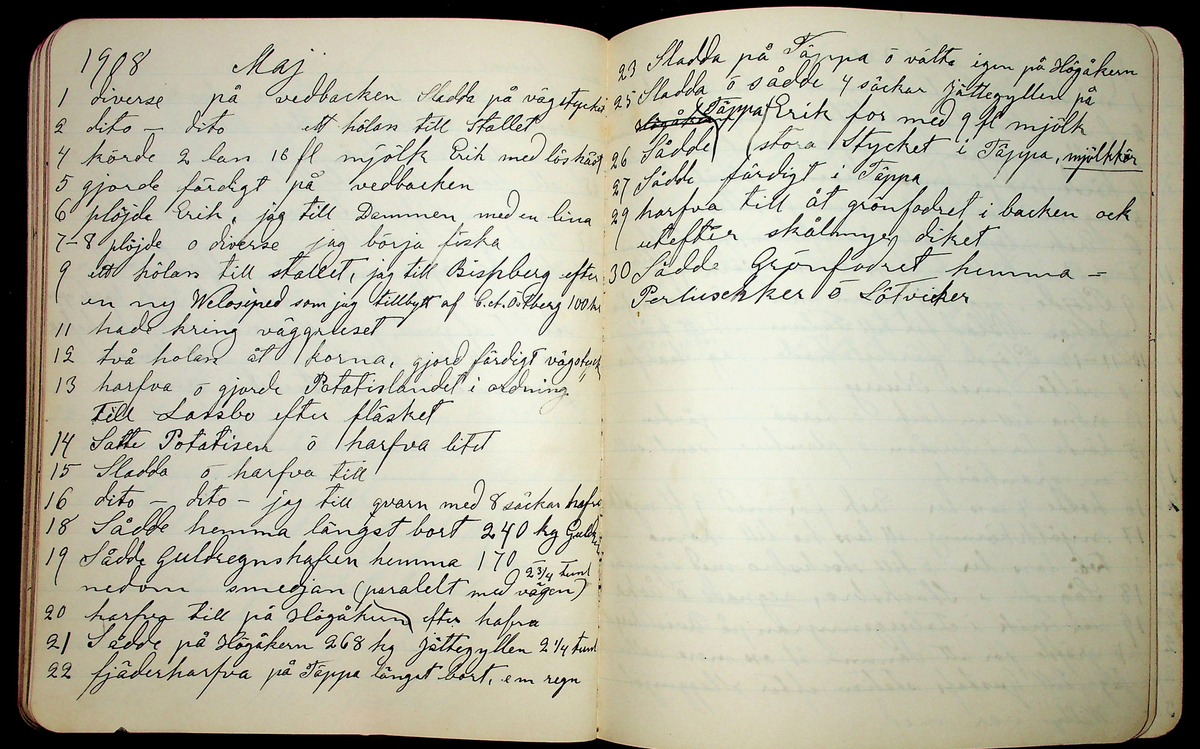 1908 Maj
1 diverse på vedbacken Sladda på vägstycket
2 dito – dito ett hölan till Stallet
4 körde 2 lan 18 fl mjölk Erik med
5 gjorde färdigt på vedbacken
6 plöjde Erik, jag till Dammen med en lina
7–8 plöjde o diverse jag börja fiska
9 ett hölan till stallet, jag till Bispberg efter
en ny Velosiped som jag tillbytt af Östberg 100 kr
11 hade kring väggruset
12 två hölan åt korna, gjord färdigt
13 harfva o gjorde Potatislandet i ordning
till Larsbo efter fläsket
14 Satte Potatisen ö harfva litet
15 Sladda ö harfva till
16 dito – dito – jag till qvarn med 8 säckar hafra
18 Sådde hemma längst bort 240 kg
19 Sådde Guldregnshafren hemma 170
2 3/4 tund
nedom smedjan (paralelt med vägen)
20 harfva till på Högåkern efter hafra
21 Sådde på Högåkern 268 kg Jättegyllen 2 1/4 tund
22 fjäderharfva på Täppa längst bort, em regn
23 Sladda på Täppa ö välta igen på Högåkern
25 Sladda ö sådde 4 säckar Jättegyllen på
Högåkern Täppa Erik for med 9 fl mjölk
26 Sådde stora Stycket i Täppa, mjölkkör
27 Sådde färdigt i Täppa
29 harfva till åt grönfodret i backen ock
utefter diket
30 Sådde Grönfodret hemma –
Perluschker ö Lötvicker